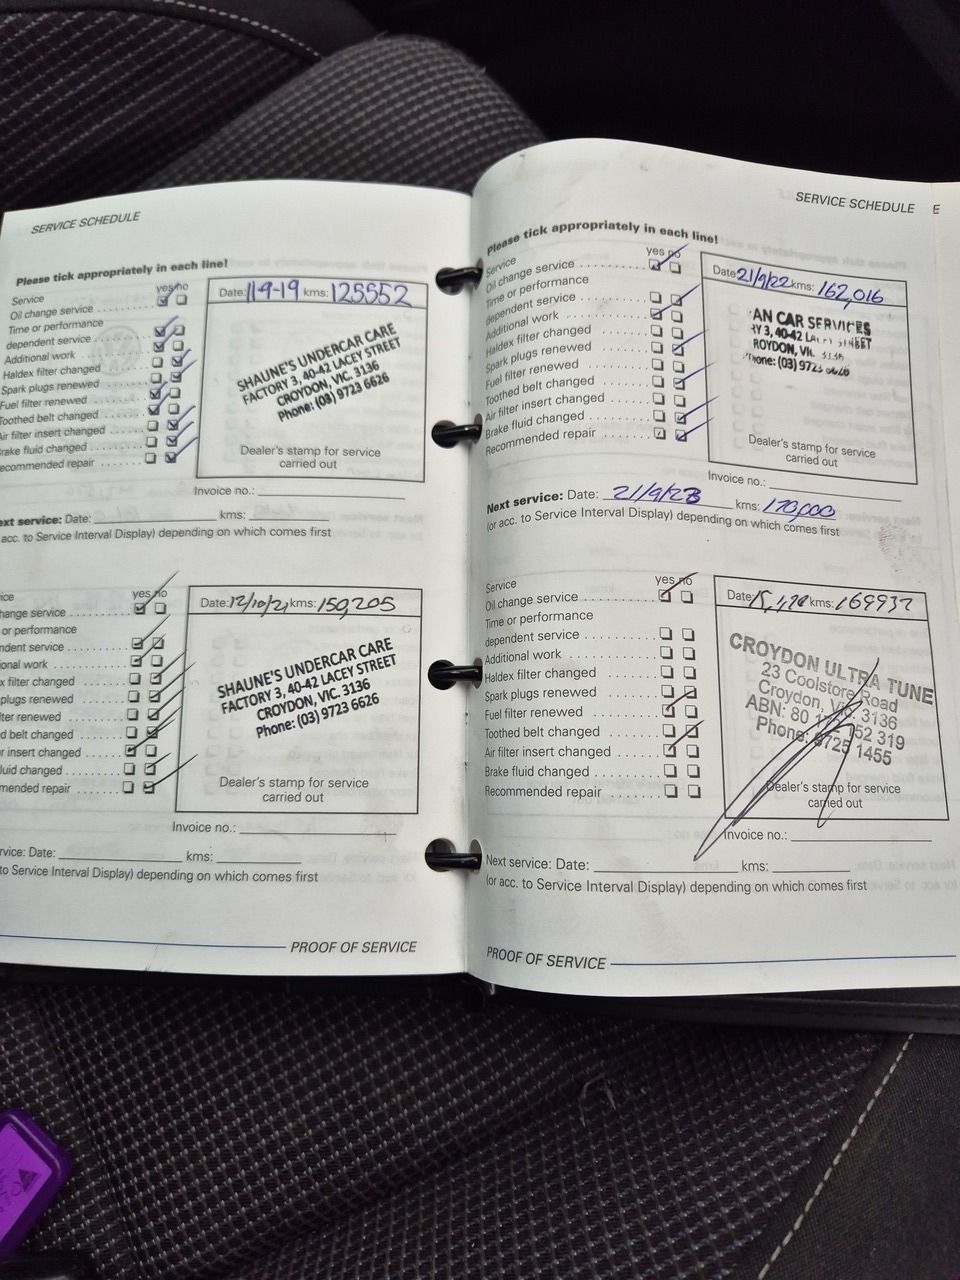 SERVICE SCHEDULE
Please tick appropriately in each line!
yes no
Service
Oil change service
Time or performance
dependent service
Additional work
Haldex filter changed
Spark plugs renewed
Fuel filter renewed
Toothed belt changed
Air filter insert changed
Brake fluid changed
ecommended repair
Date: 11-9-19 kms: 125552
SHAUNE'S UNDERCAR CARE
FACTORY 3, 40-42 LACEY STREET
CROYDON, VIC. 3136
Phone: (03) 9723 6626
Dealer's stamp for service
carried out
Invoice no.:
ext service: Date: kms:
acc. to Service Interval Display) depending on which comes first
yes no
ice
hange service
or performance
ndent service
ional work
x filter changed
plugs renewed
lter renewed
d belt changed
r insert changed
luid changed
mended repair
Date: 12/10/21 kms: 150,205
SHAUNE'S UNDERCAR CARE
FACTORY 3, 40-42 LACEY STREET
CROYDON, VIC. 3136
Phone: (03) 9723 6626
Dealer's stamp for service
carried out
Invoice no.:
rvice: Date: kms:
to Service Interval Display) depending on which comes first
PROOF OF SERVICE
SERVICE SCHEDULE E
Please tick appropriately in each line!
yes no
Service
Oil change service
Time or performance
dependent service
Additional work
Haldex filter changed
Spark plugs renewed
Fuel filter renewed
Toothed belt changed
Air filter insert changed
Brake fluid changed
Recommended repair
Date: 21/9/22 kms: 162,016
AN CAR SERVICES
RY 3, 40-42
ROYDON, VIC. 3136
hone: (03) 9723
Dealer's stamp for service
carried out
Invoice no.:
Next service: Date: 21/9/23 kms: 170,000
(or acc. to Service Interval Display) depending on which comes first
yes no
Service
Oil change service
Time or performance
dependent service
Additional work
Haldex filter changed
Spark plugs renewed
Fuel filter renewed
Toothed belt changed
Air filter insert changed
Brake fluid changed
Recommended repair
Date: kms: 169937
CROYDON ULTRA TUNE
23 Coolstore Road
Croydon, Vic. 3136
ABN: 80 152 319
Phone: 9725 1455
Dealer's stamp for service
carried out
Invoice no.:
Next service: Date: kms:
(or acc. to Service Interval Display) depending on which comes first
PROOF OF SERVICE